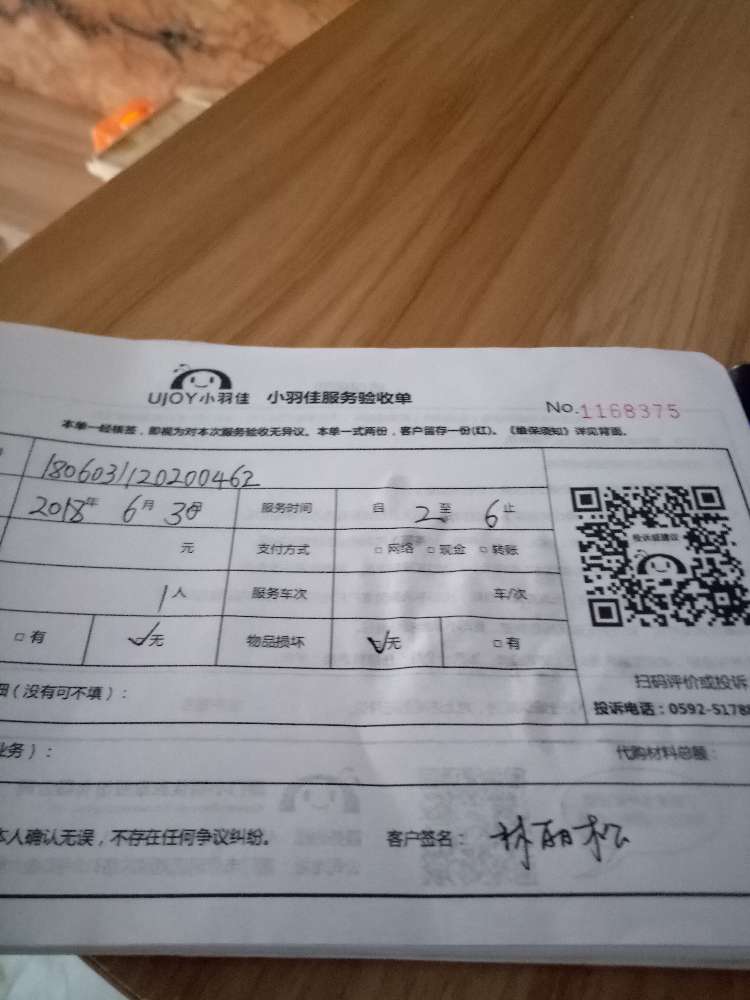 UJOY小羽佳 小羽佳服务验收单
No.1168375
本单一经核签，即视为对本次服务验收无异议。本单一式两份，客户留存一份(红)。《维保须知》详见背面。
180603120200462
2018年 6月 3日 服务时间 自 2 至 6 止
元 支付方式 □ 网络 □ 现金 □ 转账
1人 服务车次 车/次
□ 有 ✓无 物品损坏 ✓无 □ 有
投诉或建议
扫码评价或投诉
投诉电话：0592-5178
（没有可不填）：
业务）： 代购材料总额：
本人确认无误，不存在任何争议纠纷。 客户签名： 林丽松